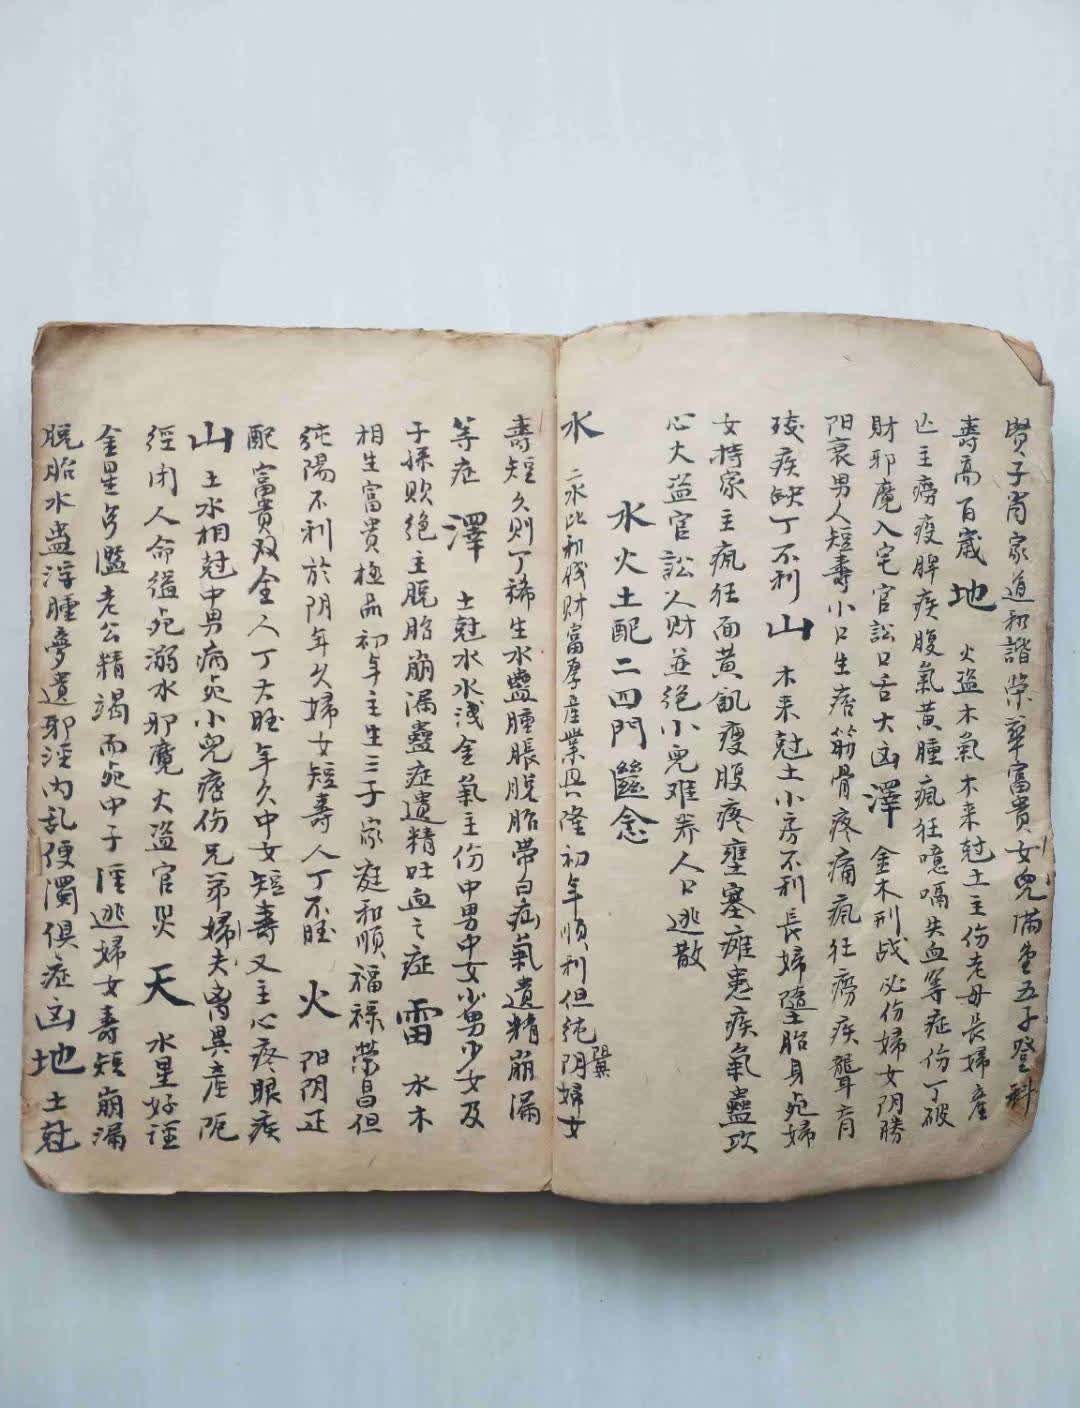 賢子肖家道和諧榮華富貴女兒滿堂五子登科
壽高百歲 地 火盜木氣木来尅土主伤老母長婦産
亡主癆疫脾疾腹氣黄腫瘋狂噫嗝失血等症伤丁破
財邪魔入宅官訟口舌大凶 澤 金木刑战必伤婦女阴勝
阳衰男人短壽小口生疳筋骨疼痛瘋狂癆疾聾盲
残疾缺丁不利 山 木来尅土小房不利長婦墮胎身死婦
女持家主瘋狂面黄飢瘦腹疼壅塞瘫患疾氣蠱攻
心火盜官訟人财並绝小兒难养人口逃散
水火土配二四門
水 二水比和伐财富厚産業興隆初年順利但純阴婦女
壽短久则丁稀生水蠱腫脹脱胎带白疝氣遺精崩漏
等症 澤 土尅水水浅金氣主伤中男中女少男少女及
子孫败绝主脱胎崩漏蠱症遺精吐血之症 雷 水木
相生富貴極品初年主生三子家庭和順福禄荣昌但
纯陽不利於阴年久婦女短壽人丁不旺 火 阳阴正
配富貴双全人丁大旺年久中女短壽又主心疼眼疾
山 土水相尅中男病死小兒瘡伤兄弟婦夫离異産阨
經闭人命缢死溺水邪魔火盜官災 天 水里好淫
金星多滥老公精竭而死中子淫逃婦女壽短崩漏
脱胎水蠱浮腫夢遺邪淫内乱便濁俱症凶 地 土尅